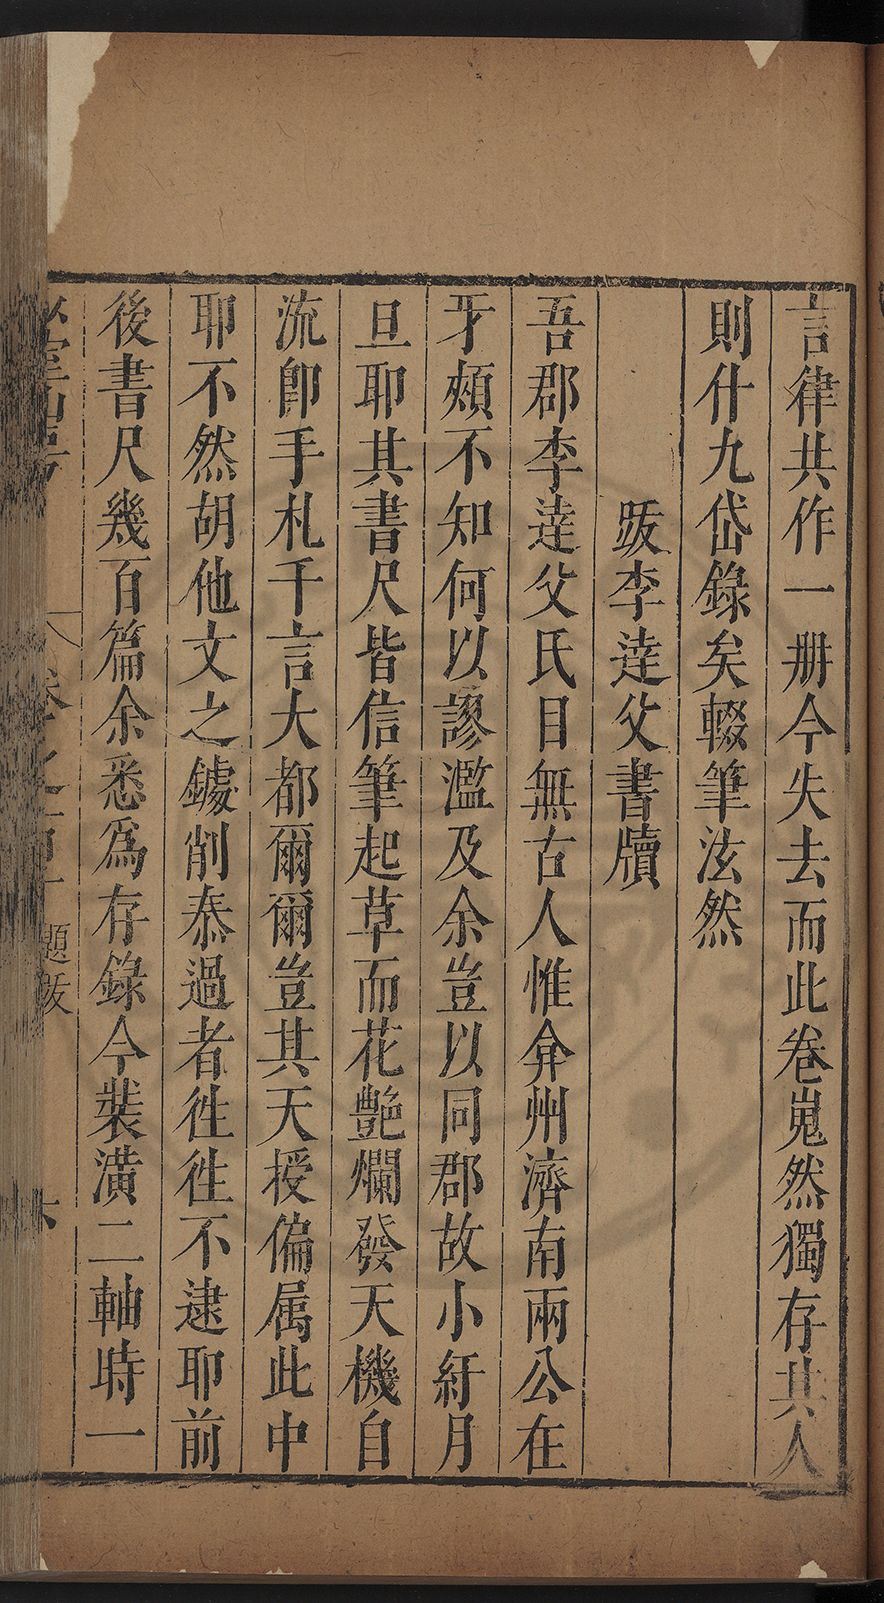 言律共作一册今失去而此卷嵬然獨存共人
則什九岱錄矣輟筆泫然
跋李達父書牘
吾郡李達父氏目無古人惟弇州濟南兩公在
牙頰不知何以謬濫及余豈以同郡故小紆月
旦耶其書尺皆信筆起草而花艷爛發天機自
流卽手札千言大都爾爾豈其天授偏属此中
耶不然胡他文之鑢削泰過者徃徃不逮耶前
後書尺幾百篇余悉爲存錄今裝潢二軸時一
題跋